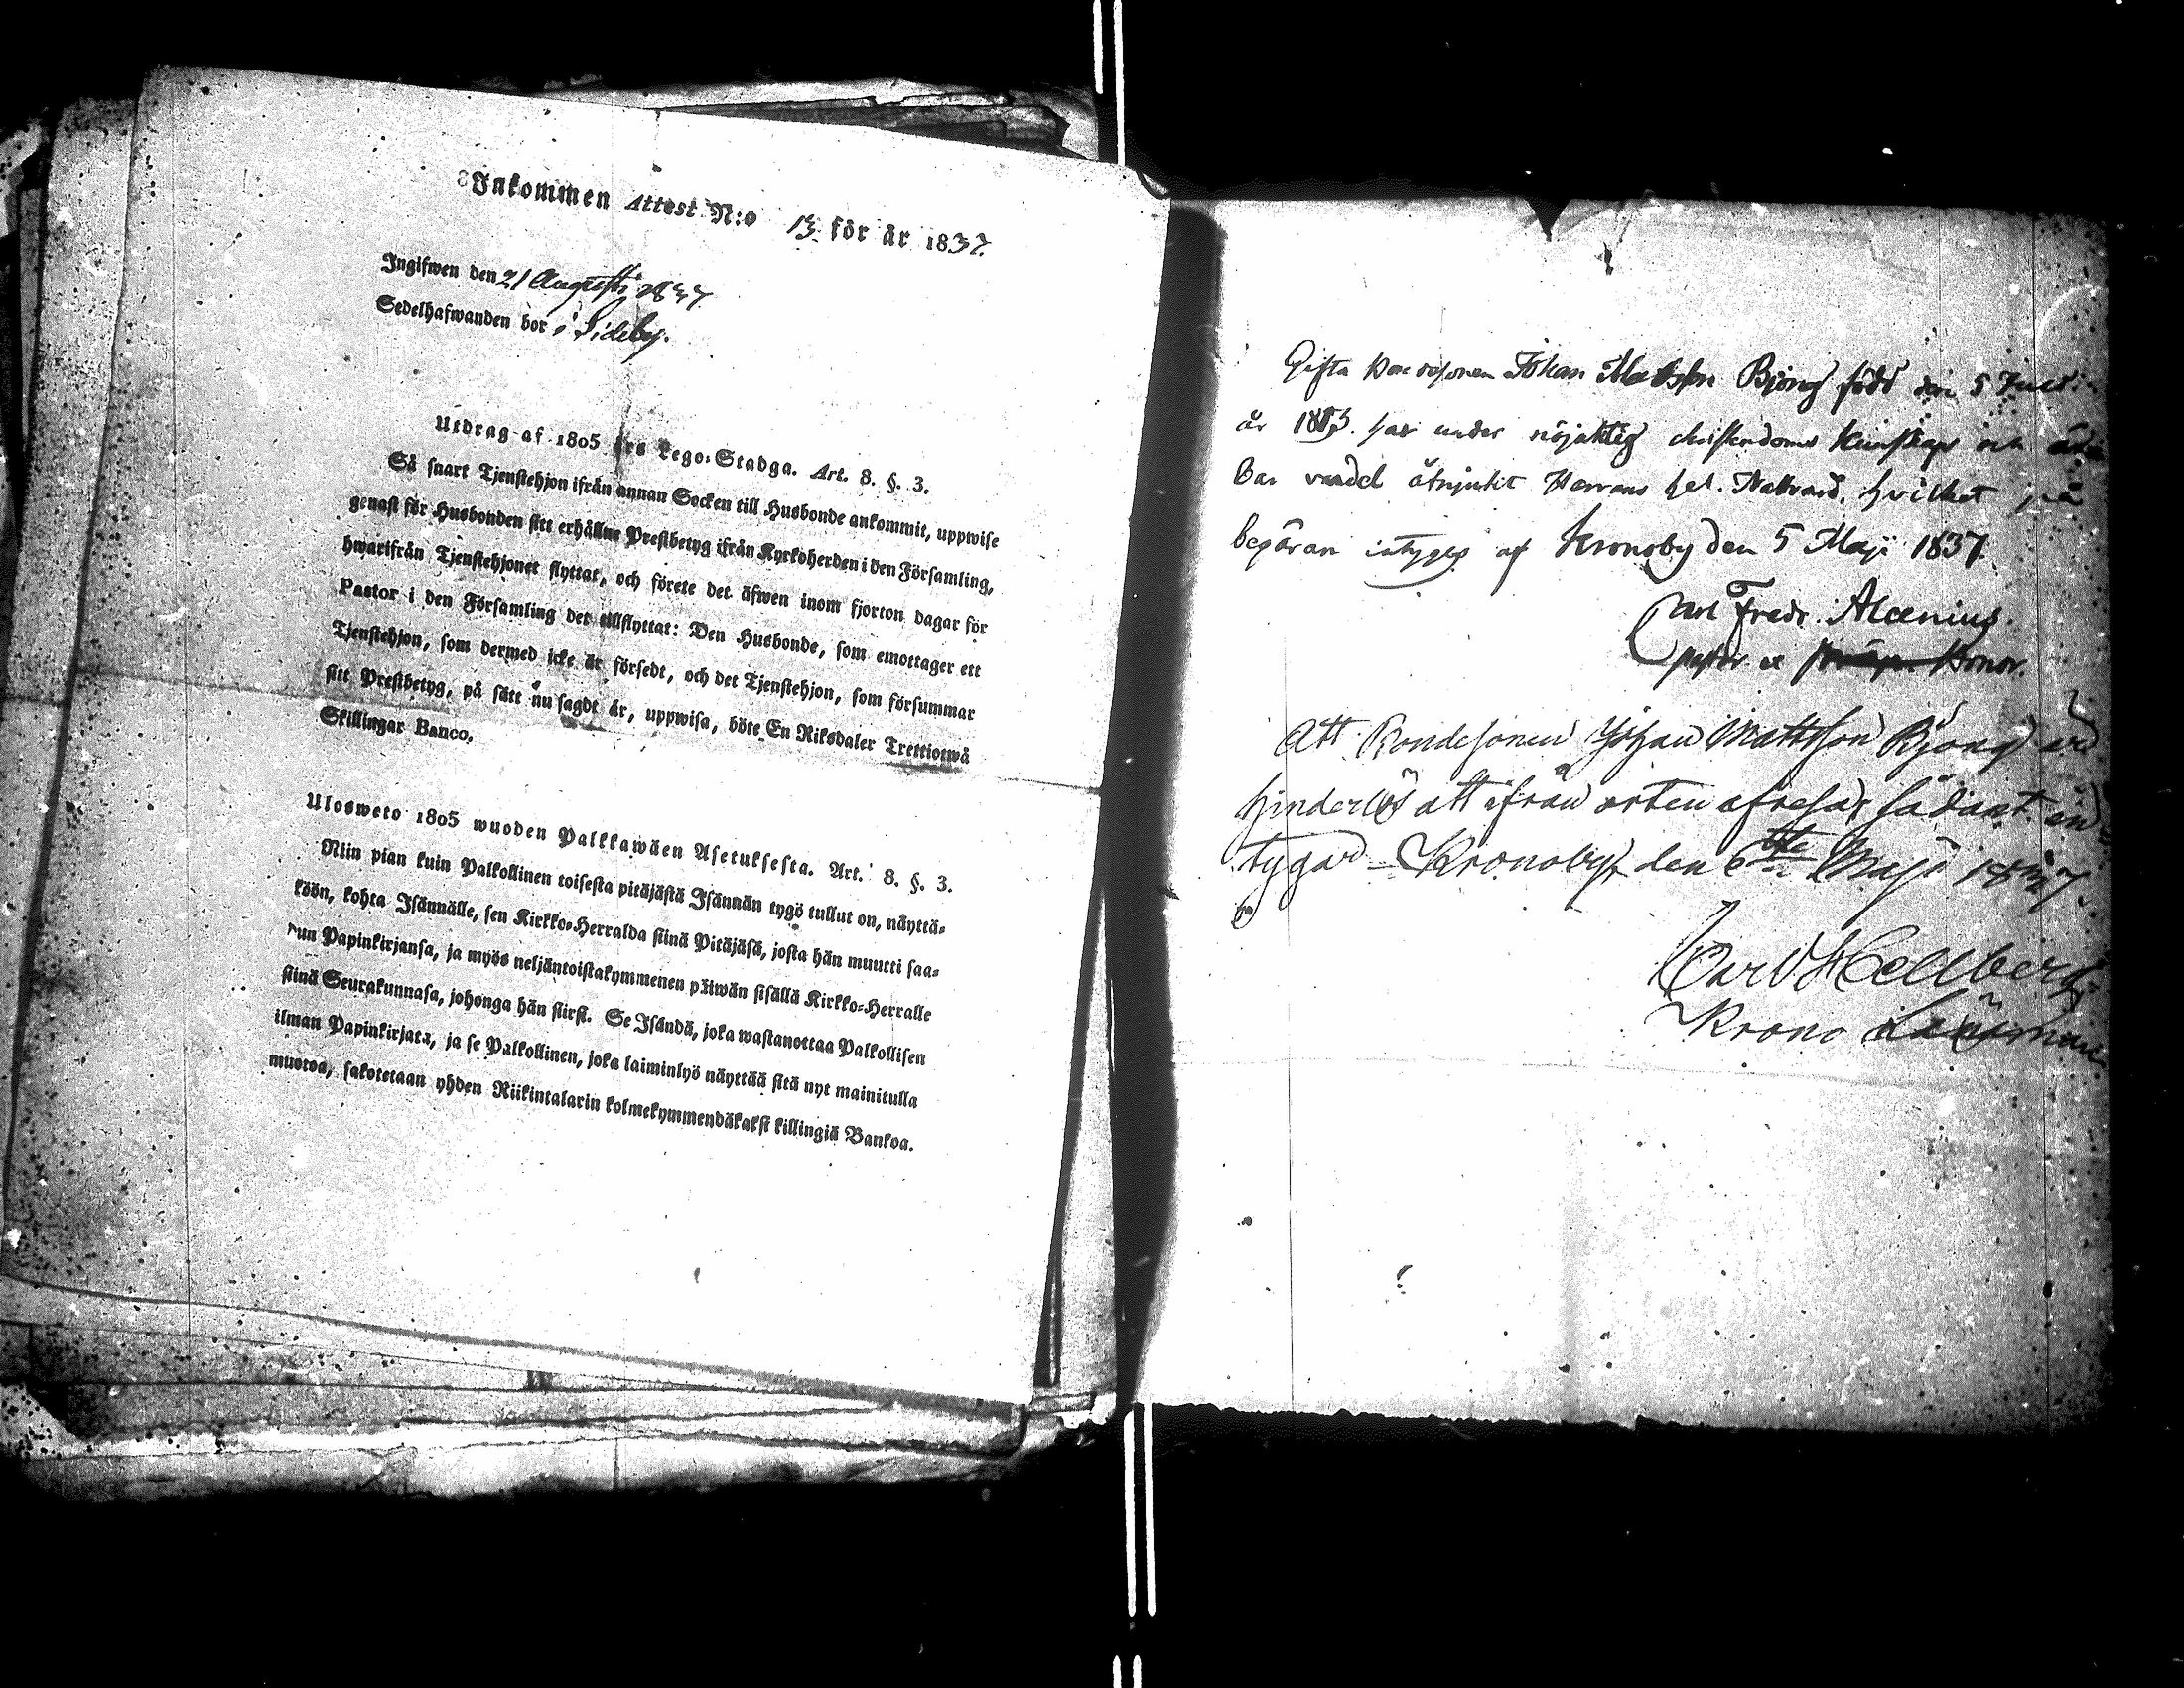 Inkommen Attest N:o 13 för år 1837.
Ingifwen den 21 Augusti 1837
Sedelhafwanden bor i Sideby.
Utdrag af 1805 års Lego-Stadga. Art. 8. §. 3.
Så snart Tjenstehjon ifrån annan Socken till Husbonde ankommit, uppwise
genast för Husbonden sitt erhållne Prestbetyg ifrån Kyrkoherden i den Församling,
hwarifrån Tjenstehjonet flyttat, och förete det äfwen inom fjorton dagar för
Pastor i den Församling det tillflyttat: Den Husbonde, som emottager ett
Tjenstehjon, som dermed icke är försedt, och det Tjenstehjon, som försummar
sitt Prestbetyg, på sätt nu sagdt är, uppwisa, böte En Riksdaler Trettiotwå
Skillingar Banco.
Ulosweto 1805 wuoden Palkkawäen Asetuksesta. Art. 8. §. 3.
Niin pian kuin Palkollinen toisesta pitäjästä Isännän tygö tullut on, näyttä-
köön, kohta Isännälle, sen Kirkko-Herralda siinä Pitäjäsä, josta hän muutti saa-
dun Papinkirjansa, ja myös neljäntoistakymmenen päiwän sisällä Kirkko-Herralle
siinä Seurakunnasa, johonga hän siirsi. Se Isändä, joka wastanottaa Palkollisen
ilman Papinkirjata, ja se Palkollinen, joka laiminlyö näyttää sitä nyt mainitulla
muotoa, sakotetaan yhden Riikintalarin kolmekymmendäkaksi killingiä Bankoa.
Gifta Bondesonen Johan Matsson Björng född den 5
år har under nöjaktig christendoms kunskap och
bar vandel åtnjutit Herrans hel. Nattvard, hvilket på
begäran intygas af Kronoby den 5 Maji 1837.
Carl Fredr. Alcenius.
pastor et Honor.
Att Bondesonen Johan Mattsson Björng är
hinderlös att ifrån orten afresa, sådant in
tygar Kronoby den 6te Maji 1837.
Carl Hellberg
Krono Länsman